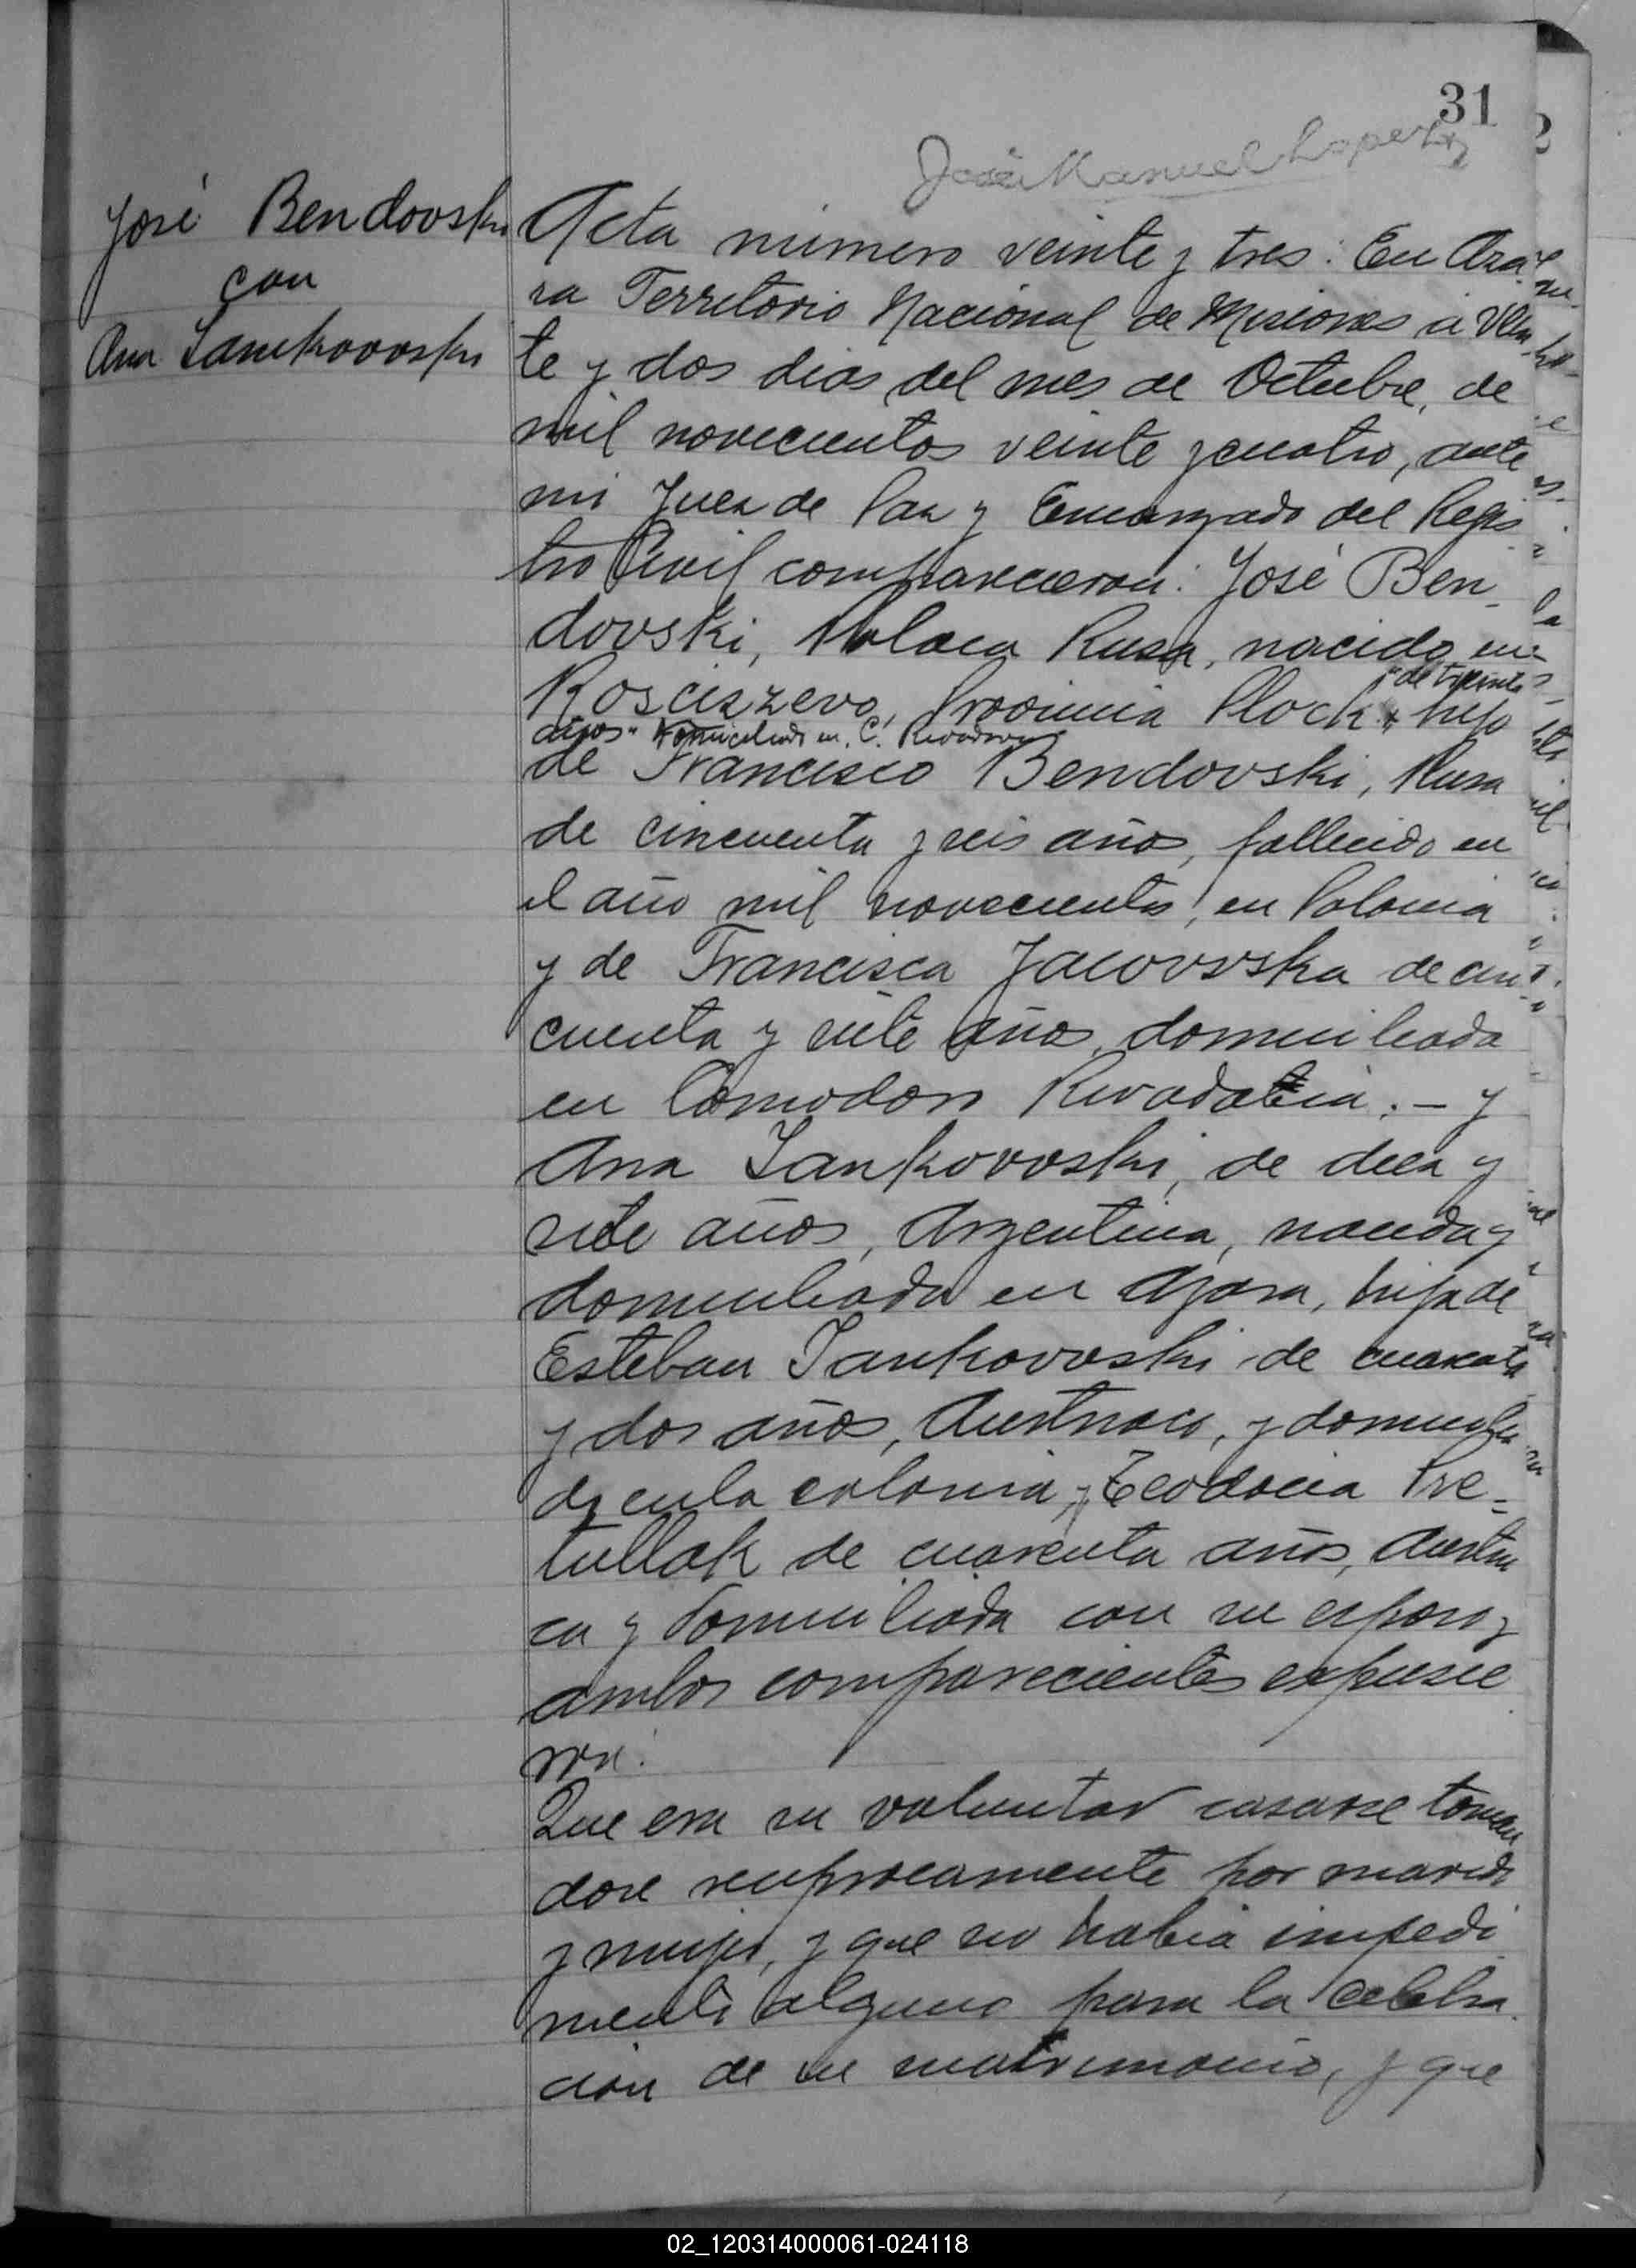 31
José Manuel Lopez
José Bendovski
con
Ana Iankovoski
Acta número veinte y tres: En Aza
ra Territorio Nacional de Misiones á vein
te y dos dias del mes de Octubre, de
mil novecientos veinte y cuatro, ante
mi Juez de Paz y Encargado del Regis
tro Civil comparecieron: José Ben-
dovski, Polaca Rusa, nacido en
Rosciszevo, Provincia Plock, hijo
"de treinta
años" domiciliado en C. Rivadavia
de Francisco Bendovski, Rusa
de cincuenta y seis años, fallecido en
el año mil novecientos, en Polonia
y de Francisca Jacovvska de cin
cuenta y siete años, domiciliada
en Comodoro Rivadavia. - y
Ana Iankovoski, de diez y
siete años, Argentina, nacida y
domiciliada en Azara, hija de
Esteban Iankovoski de cuarenta
y dos años, Austriaco, y domicilia
do en la colonia y Teodocia Pre-
tullak de cuarenta años, Austria
ca y domiciliada con su esposo y
ambos comparecientes expusie
ron:
Que era su voluntad casarse toman
dose reciprocamente por marido
y mujer, y que no habia impedi
mento alguno para la celebra
ción de su matrimonio, y que
02_120314000061-024118